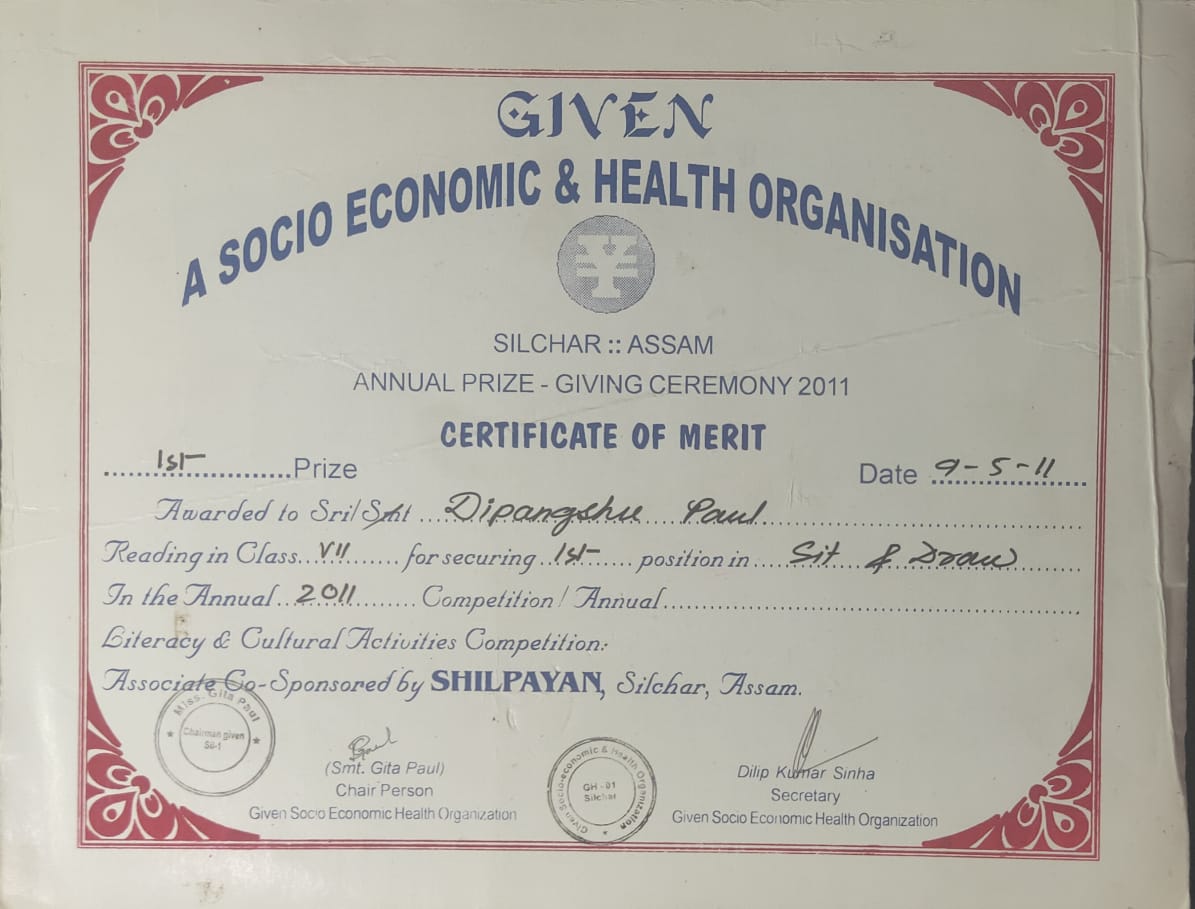 GIVEN
A SOCIO ECONOMIC & HEALTH ORGANISATION
SILCHAR :: ASSAM
ANNUAL PRIZE - GIVING CEREMONY 2011
CERTIFICATE OF MERIT
1st Prize Date 9-5-11
Awarded to Sri/Smt Dipangshu Paul
Reading in Class VII for securing 1st position in Sit & Draw
In the Annual 2011 Competition / Annual
Literacy & Cultural Activities Competition:
Associate Co-Sponsored by SHILPAYAN, Silchar, Assam.
Miss. Gita Paul
Chairman given
Sil-1
Paul
(Smt. Gita Paul)
Chair Person
Given Socio Economic Health Organization
Given Socio-economic & Health Organization
GH - 01
Silchar
Dilip Kumar Sinha
Secretary
Given Socio Economic Health Organization